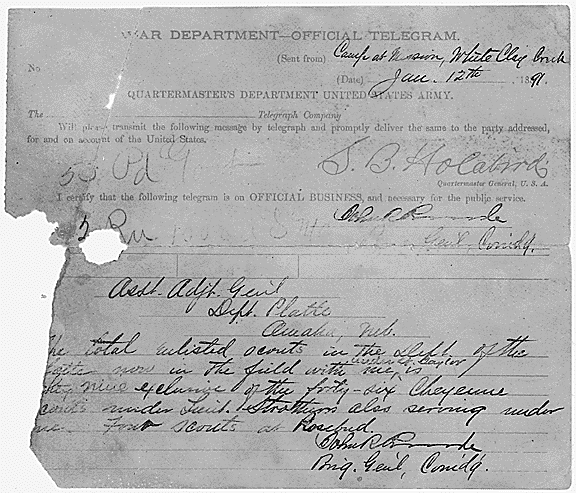 WAR DEPARTMENT—OFFICIAL TELEGRAM.
(Sent from) Camp at Mission, White Clay Creek
No
(Date) Jan. 12th 1891.
QUARTERMASTER'S DEPARTMENT UNITED STATES ARMY.
The Telegraph Company
Will please transmit the following message by telegraph and promptly deliver the same to the party addressed,
for and on account of the United States.
53 Pd G
S. B. Holabird
Quartermaster General, U. S. A.
I certify that the following telegram is on OFFICIAL BUSINESS, and necessary for the public service.
John R Brooke
Genl, Comdg.
Asst. Adjt. Genl
Dept. Platte
Omaha, Neb.
The total enlisted scouts in the Dept. of the
Platte now in the field with me, under Taylor is
nine exclusive of the forty-six Cheyenne
scouts under Lieut. Strothers also serving under
me. Four scouts at Rosebud
John R Brooke
Brig. Genl, Comdg.